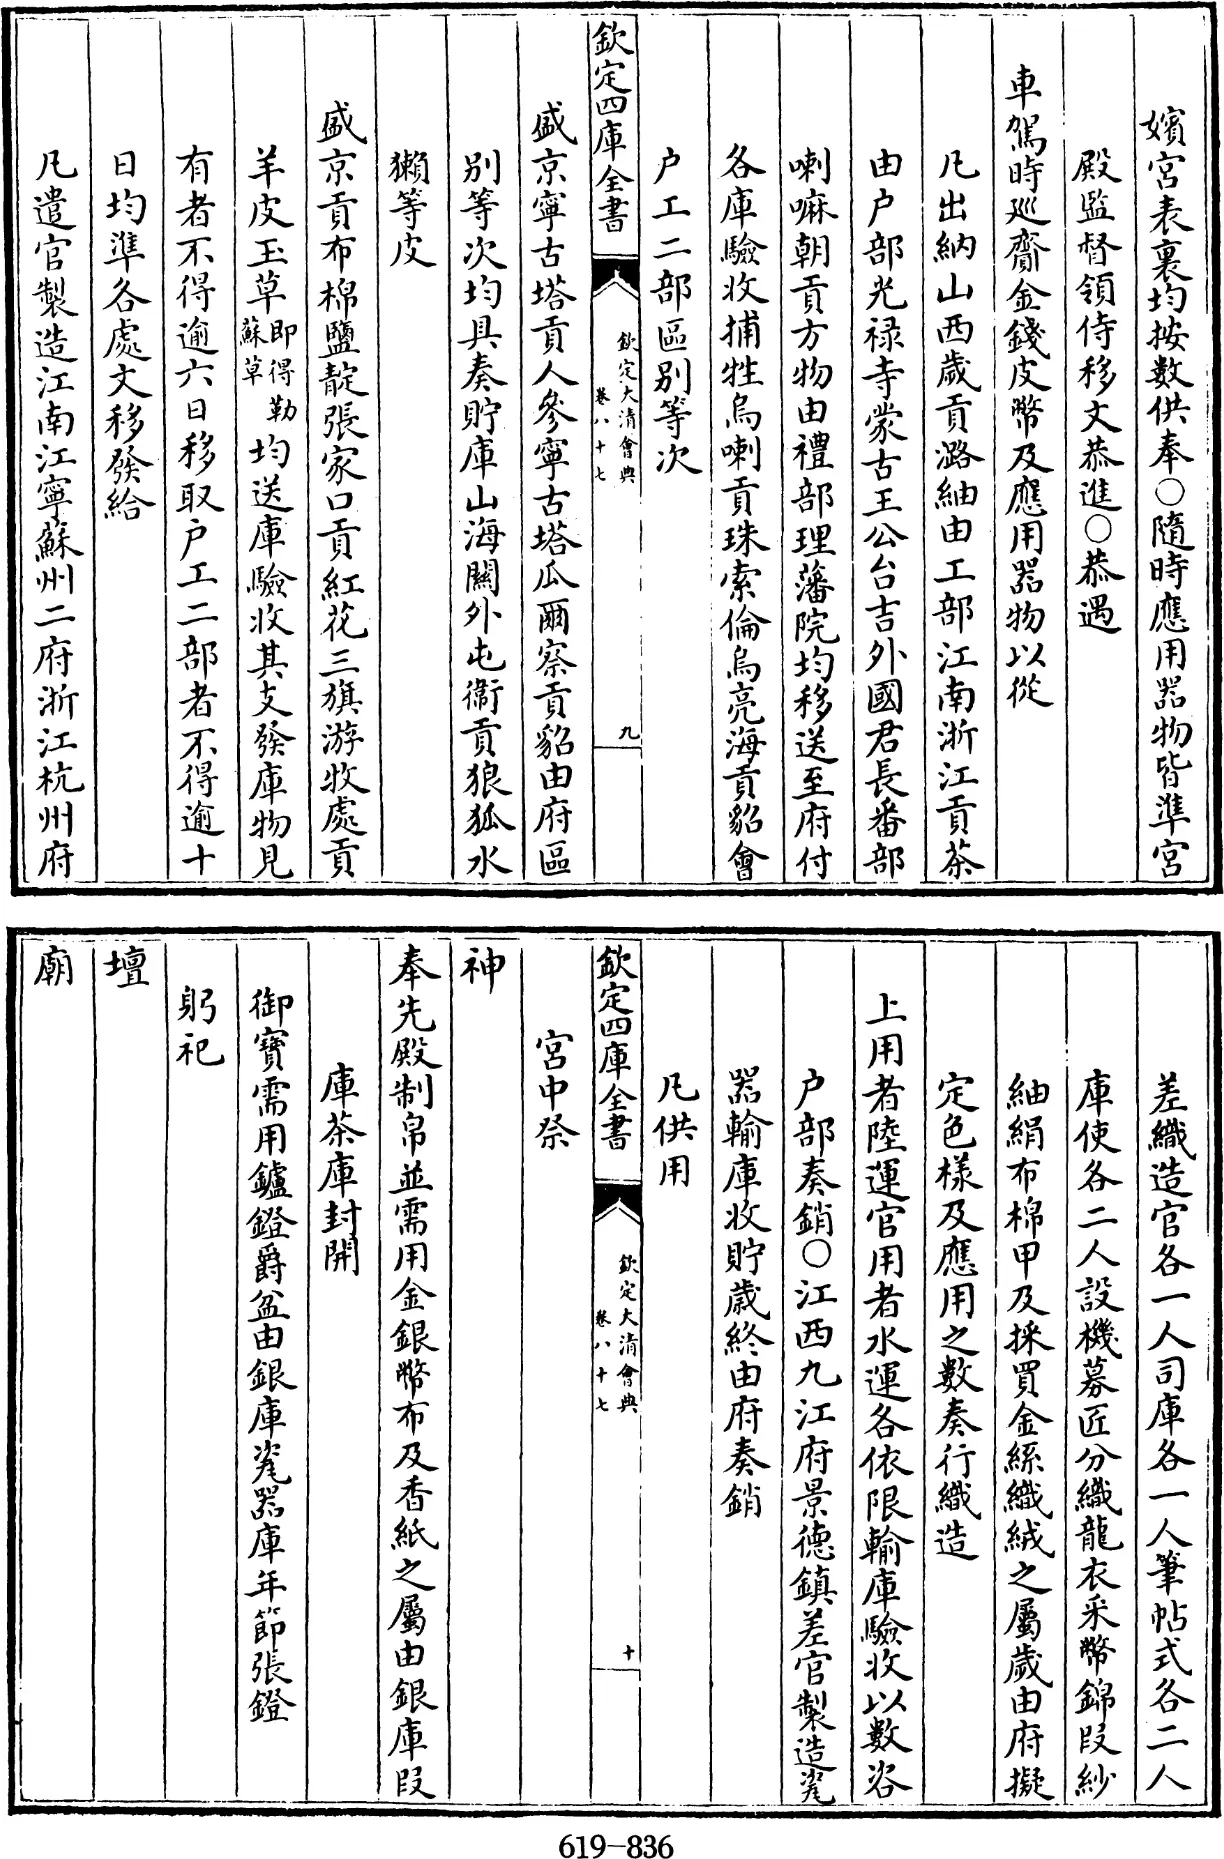 嬪宮表裏均按數供奉○隨時應用器物皆準宮
殿監督領侍移文恭進○恭遇
車駕時巡齎金錢皮幣及應用器物以從
凡出納山西歲貢潞紬由工部江南浙江貢茶
由户部光禄寺蒙古王公台吉外國君長番部
喇嘛朝貢方物由禮部理藩院均移送至府付
各庫驗收捕牲烏喇貢珠索倫烏亮海貢貂會
户工二部區别等次
欽定四庫全書
欽定大清會典
卷八十七
九
盛京寧古塔貢人參寧古塔瓜爾察貢貂由府區
别等次均具奏貯庫山海關外屯衞貢狼狐水
獺等皮
盛京貢布棉鹽靛張家口貢紅花三旗游牧處貢
羊皮玉草即得勒蘇草均送庫驗收其支發庫物見
有者不得逾六日移取户工二部者不得逾十
日均準各處文移發給
凡遣官製造江南江寧蘇州二府浙江杭州府
差織造官各一人司庫各一人筆帖式各二人
庫使各二人設機募匠分織龍衣采幣錦段紗
紬絹布棉甲及採買金絲織絨之屬歲由府擬
定色樣及應用之數奏行織造
上用者陸運官用者水運各依限輸庫驗收以數咨
户部奏銷○江西九江府景德鎮差官製造瓷
器輸庫收貯歲終由府奏銷
凡供用
欽定四庫全書
欽定大清會典
卷八十七
十
宮中祭
神
奉先殿制帛並需用金銀幣布及香紙之屬由銀庫段
庫茶庫封開
御寶需用鑪鐙爵盆由銀庫瓷器庫年節張鐙
躬祀
壇
廟
619-836